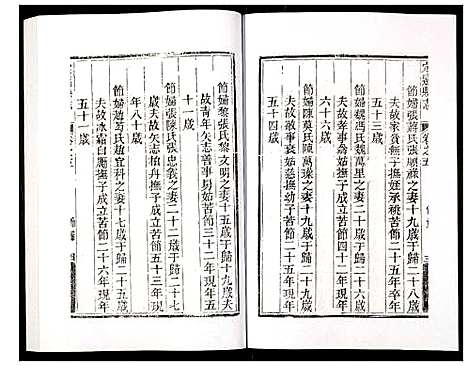 節婦蕭氏張順祿之妻十九歲于歸二十八歲
夫故家貧無子撫姪承祧苦節二十五年卒年
五十三歲
節婦魏馮氏魏萬里之妻十九歲于歸二十九歲
夫故孝事翁姑慈撫子成立苦節四十二年現年
六十六歲
節婦陳莫氏陳萬琭之妻十九歲于歸二十九歲
夫故敬事衰姑慈撫幼子苦節二十六年現年
五十四歲
節婦黎張氏黎文明之妻十五歲于歸十九歲夫
故青年矢志善事舅姑苦節三十二年現年五
十一歲
節婦張陳氏張忠義之妻二十二歲于歸二十七
歲夫故矢志柏舟撫子成立苦節五十三年現
年八十歲
節婦趙萬氏趙宜科之妻十七歲于歸二十五歲
夫故冰霜自勵撫子成立苦節二十六年現年
五十一歲